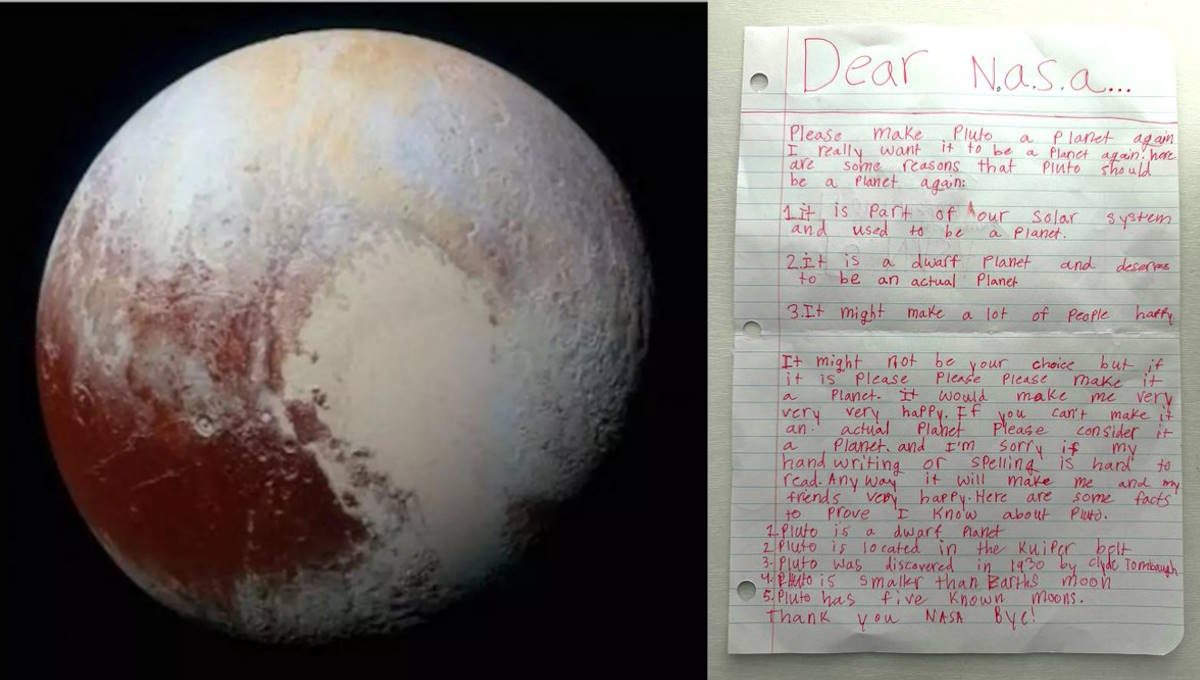 Dear N.a.s.a...
Please make Pluto a planet again
I really want it to be a Planet again. here
are some reasons that Pluto should
be a Planet again:
1. it is Part of our solar system
and used to be a Planet.
2. It is a dwarf Planet and deserves
to be an actual Planet
3. It might make a lot of People happy
It might not be your choice but if
it is Please Please Please make it
a Planet. it would make me very
very very happy. If you can't make it
an actual Planet Please consider it
a Planet. and I'm sorry if my
hand writing or spelling is hard to
read. Any way it will make me and my
friends very happy. Here are some facts
to Prove I Know about Pluto.
1. Pluto is a dwarf Planet
2 Pluto is located in the Kuiper belt
3. Pluto was discovered in 1930 by Clyde Tombaugh
4. Pluto is smaller than Earths moon
5. Pluto has five Known moons.
Thank you NASA Bye!